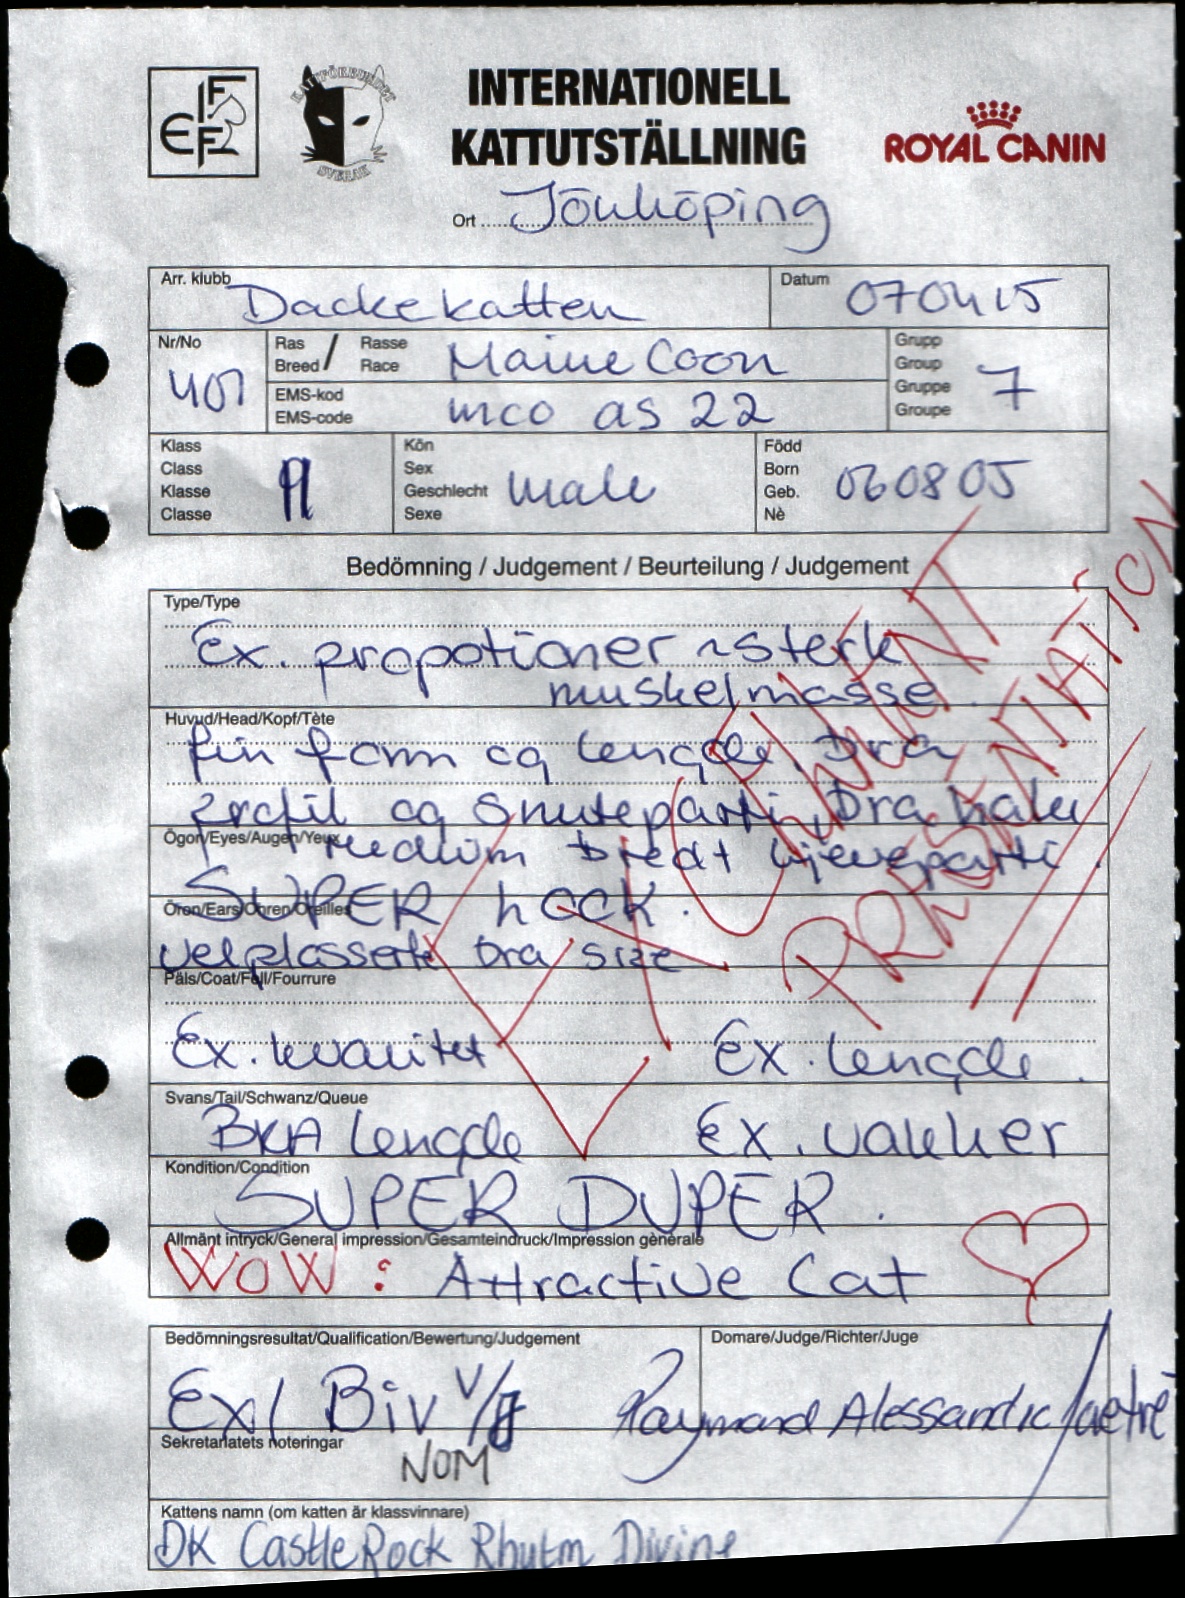 FIFE
KATTFÖRBUNDET
SVERAK
INTERNATIONELL
KATTUTSTÄLLNING
ROYAL CANIN
Ort Jönköping
Arr. klubb Dackekatten
Datum 070415
Nr/No 401
Ras / Rasse
Breed / Race
Maine Coon
EMS-kod
EMS-code
mco as 22
Grupp
Group
Gruppe
Groupe
7
Klass
Class
Klasse
Classe
11
Kön
Sex
Geschlecht
Sexe
male
Född
Born
Geb.
Nè
060805
Bedömning / Judgement / Beurteilung / Judgement
Type/Type
Ex. propotioner sterk
muskelmasse
Huvud/Head/Kopf/Tète
fin form og lengde, bra
profil og snuteparti, bra hake
Ögon/Eyes/Augen/Yeux
medium bredt kjeveparti.
SUPER LOOK.
Öron/Ears/Ohren/Oreilles
velplasserte bra size
Päls/Coat/Fell/Fourrure
Ex. kvalitet Ex. lengde.
Svans/Tail/Schwanz/Queue
BRA lengde Ex. vakker
Kondition/Condition
SUPER DUPER.
Allmänt intryck/General impression/Gesamteindruck/Impression gènèrale
WOW: Attractive Cat
EXCELLENT
PRESENTATION
Bedömningsresultat/Qualification/Bewertung/Judgement
Ex1 Biv
Domare/Judge/Richter/Juge
Raymond Alessandro Saetre
Sekretariatets noteringar
NOM
Kattens namn (om katten är klassvinnare)
DK CastleRock Rhytm Divine